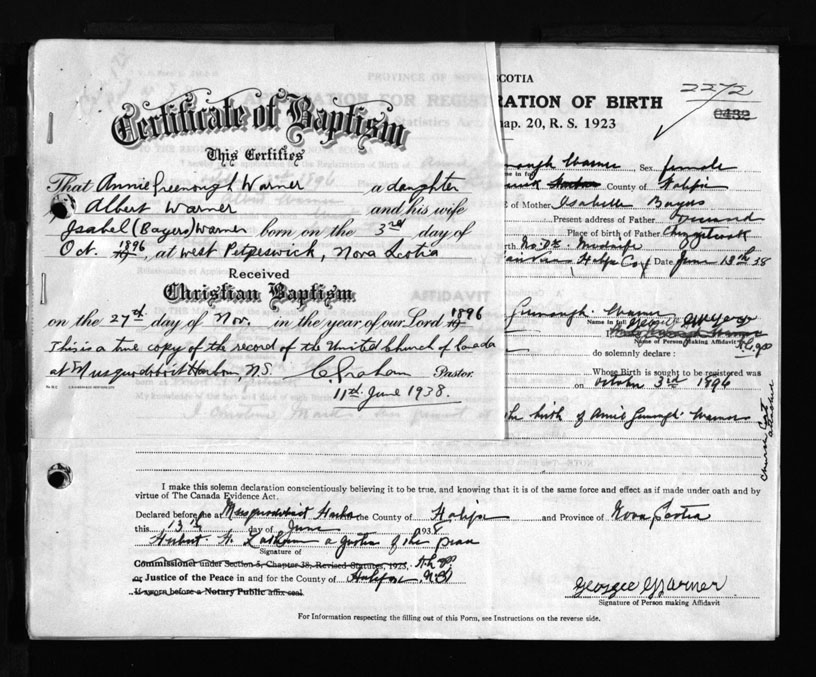 Certificate of Baptism
This Certifies
That Annie Greenough Warner a daughter
Albert Warner and his wife
Isabel (Bayers) Warner born on the 3rd day of
Oct. 1896, at West Petpeswick, Nova Scotia
Received
Christian Baptism
on the 27th day of Nov. in the year of our Lord 1896
This is a true copy of the record of the United Church of Canada
at Musquodoboit Harbour N.S. C. Graham Pastor.
11th June 1938.
SCOTIA
RATION OF BIRTH
hap. 20, R. S. 1923
2272
0432
Warner Sex female
County of Halifax
of Mother Isabelle Bayers
Present address of Father
Place of birth of Father Chezzetcook
Date June 13th 38
Warner
Name in full
Name of Person Making Affidavit
do solemnly declare :
Whose Birth is sought to be registered was
on October 3rd 1896
the birth of Annie Greenough Warner
I make this solemn declaration conscientiously believing it to be true, and knowing that it is of the same force and effect as if made under oath and by
virtue of The Canada Evidence Act.
Declared before me at Musquodoboit Harbour the County of Halifax and Province of Nova Scotia
this 13th day of June 1938
Signature of
Commissioner under Section 5, Chapter 38, Revised Statutes, 1923,
or Justice of the Peace in and for the County of Halifax N.S.
If sworn before a Notary Public affix seal.
George Warner
Signature of Person making Affidavit
For Information respecting the filling out of this Form, see Instructions on the reverse side.